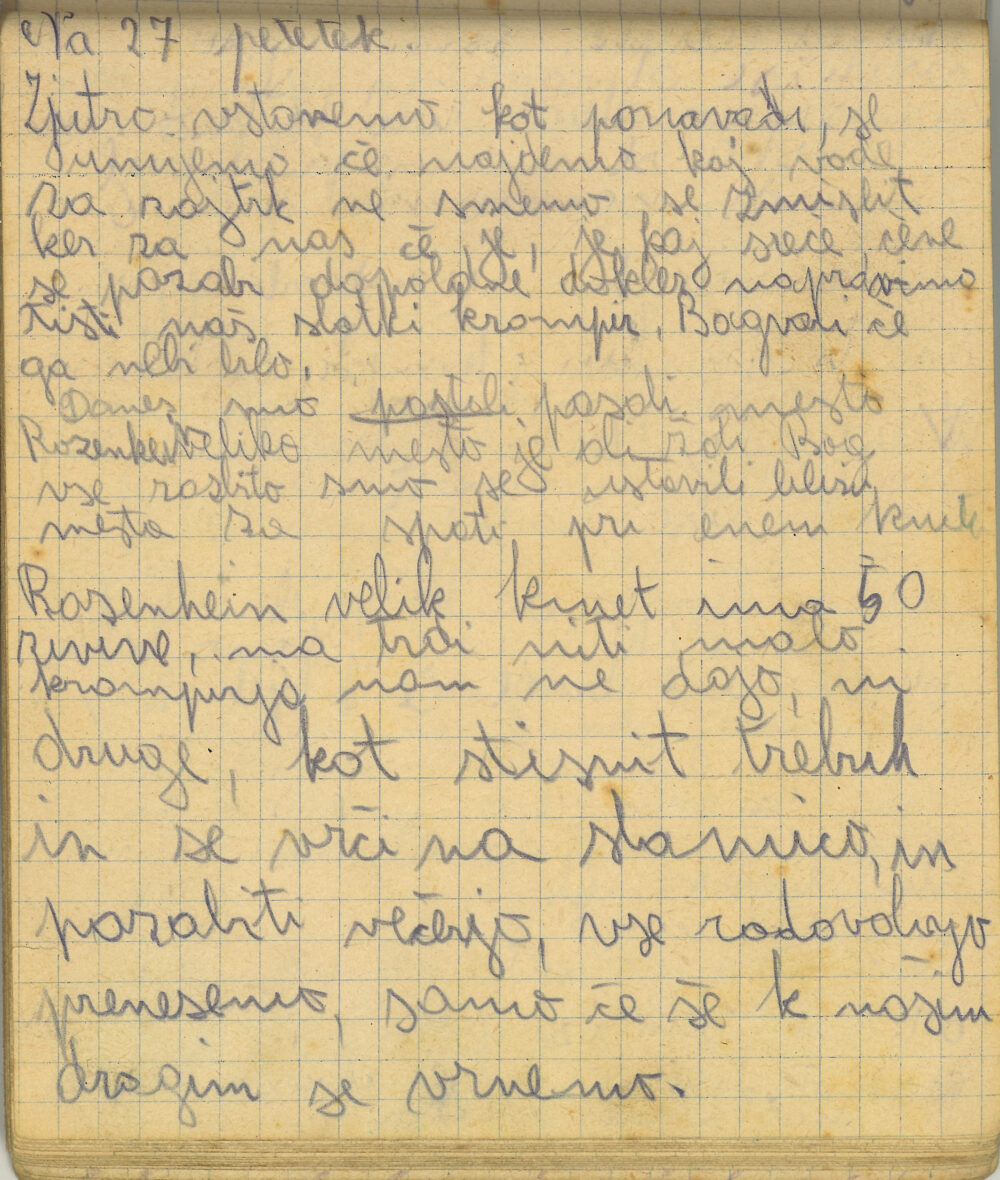 Na 27 petetek.
Zjutro vstanemo kot ponavadi, se
umijemo če najdemo kaj vode
za zajtrk ne smemo se zmislit
ker za nas če je, je kaj sreče čene
se pozabi dopoldne dokler napravimo
tisti naš slatki krompir, Bogvari če
ga nebi bilo.
Danes smo postili pasali mesto
veliko mesto je ali žali Bog
vse razbito smo se ustavili blizu
mesta za spati pri enem kmek
Rosenhein velik kmet ima 50
živine, ma trdi niti malo
krompirja nam ne dajo, ni
druge, kot stisnit trebuh
in se vrči na slamico, in
pozabiti večerjo, vse radovoljno
prenesemo, samo če še k našim
dragim se vrnemo.